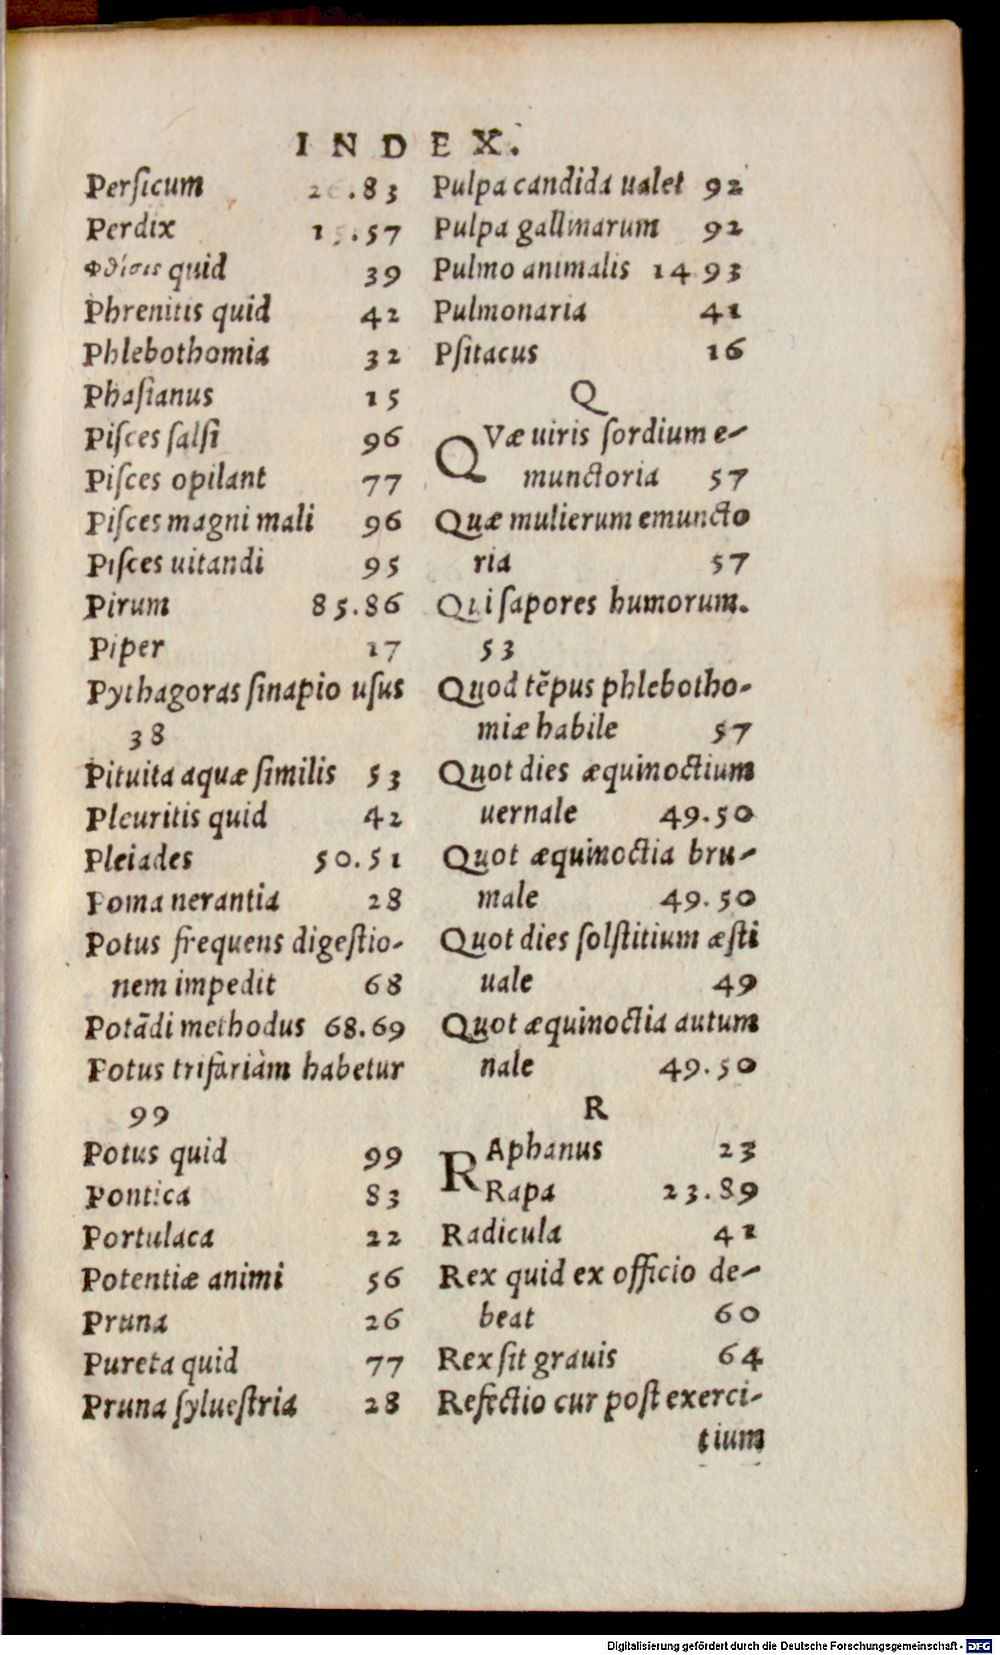 INDEX.
Perſicum 26.83
Perdix 15.57
Φθίσις quid 39
Phrenitis quid 42
Phlebothomia 32
Phaſianus 15
Piſces ſalſi 96
Piſces opilant 77
Piſces magni mali 96
Piſces uitandi 95
Pirum 85.86
Piper 17
Pythagoras ſinapio uſus
38
Pituita aquæ ſimilis 53
Pleuritis quid 42
Pleiades 50.51
Poma nerantia 28
Potus frequens digeſtio-
nem impedit 68
Potādi methodus 68.69
Potus trifariàm habetur
99
Potus quid 99
Pontica 83
Portulaca 22
Potentiæ animi 56
Pruna 26
Pureta quid 77
Pruna ſylueſtria 28
Pulpa candida ualet 92
Pulpa gallinarum 92
Pulmo animalis 14 93
Pulmonaria 41
Pſitacus 16
Q
QVæ uiris ſordium e-
munctoria 57
Quæ mulierum emuncto
ria 57
Qui ſapores humorum.
53
Quod tēpus phlebotho-
miæ habile 57
Quot dies æquinoctium
uernale 49.50
Quot æquinoctia bru-
male 49.50
Quot dies ſolſtitium æſti
uale 49
Quot æquinoctia autum
nale 49.50
R
RAphanus 23
Rapa 23.89
Radicula 41
Rex quid ex officio de-
beat 60
Rex ſit grauis 64
Refectio cur poſt exerci-
tium
Digitalisierung gefördert durch die Deutsche Forschungsgemeinschaft - DFG